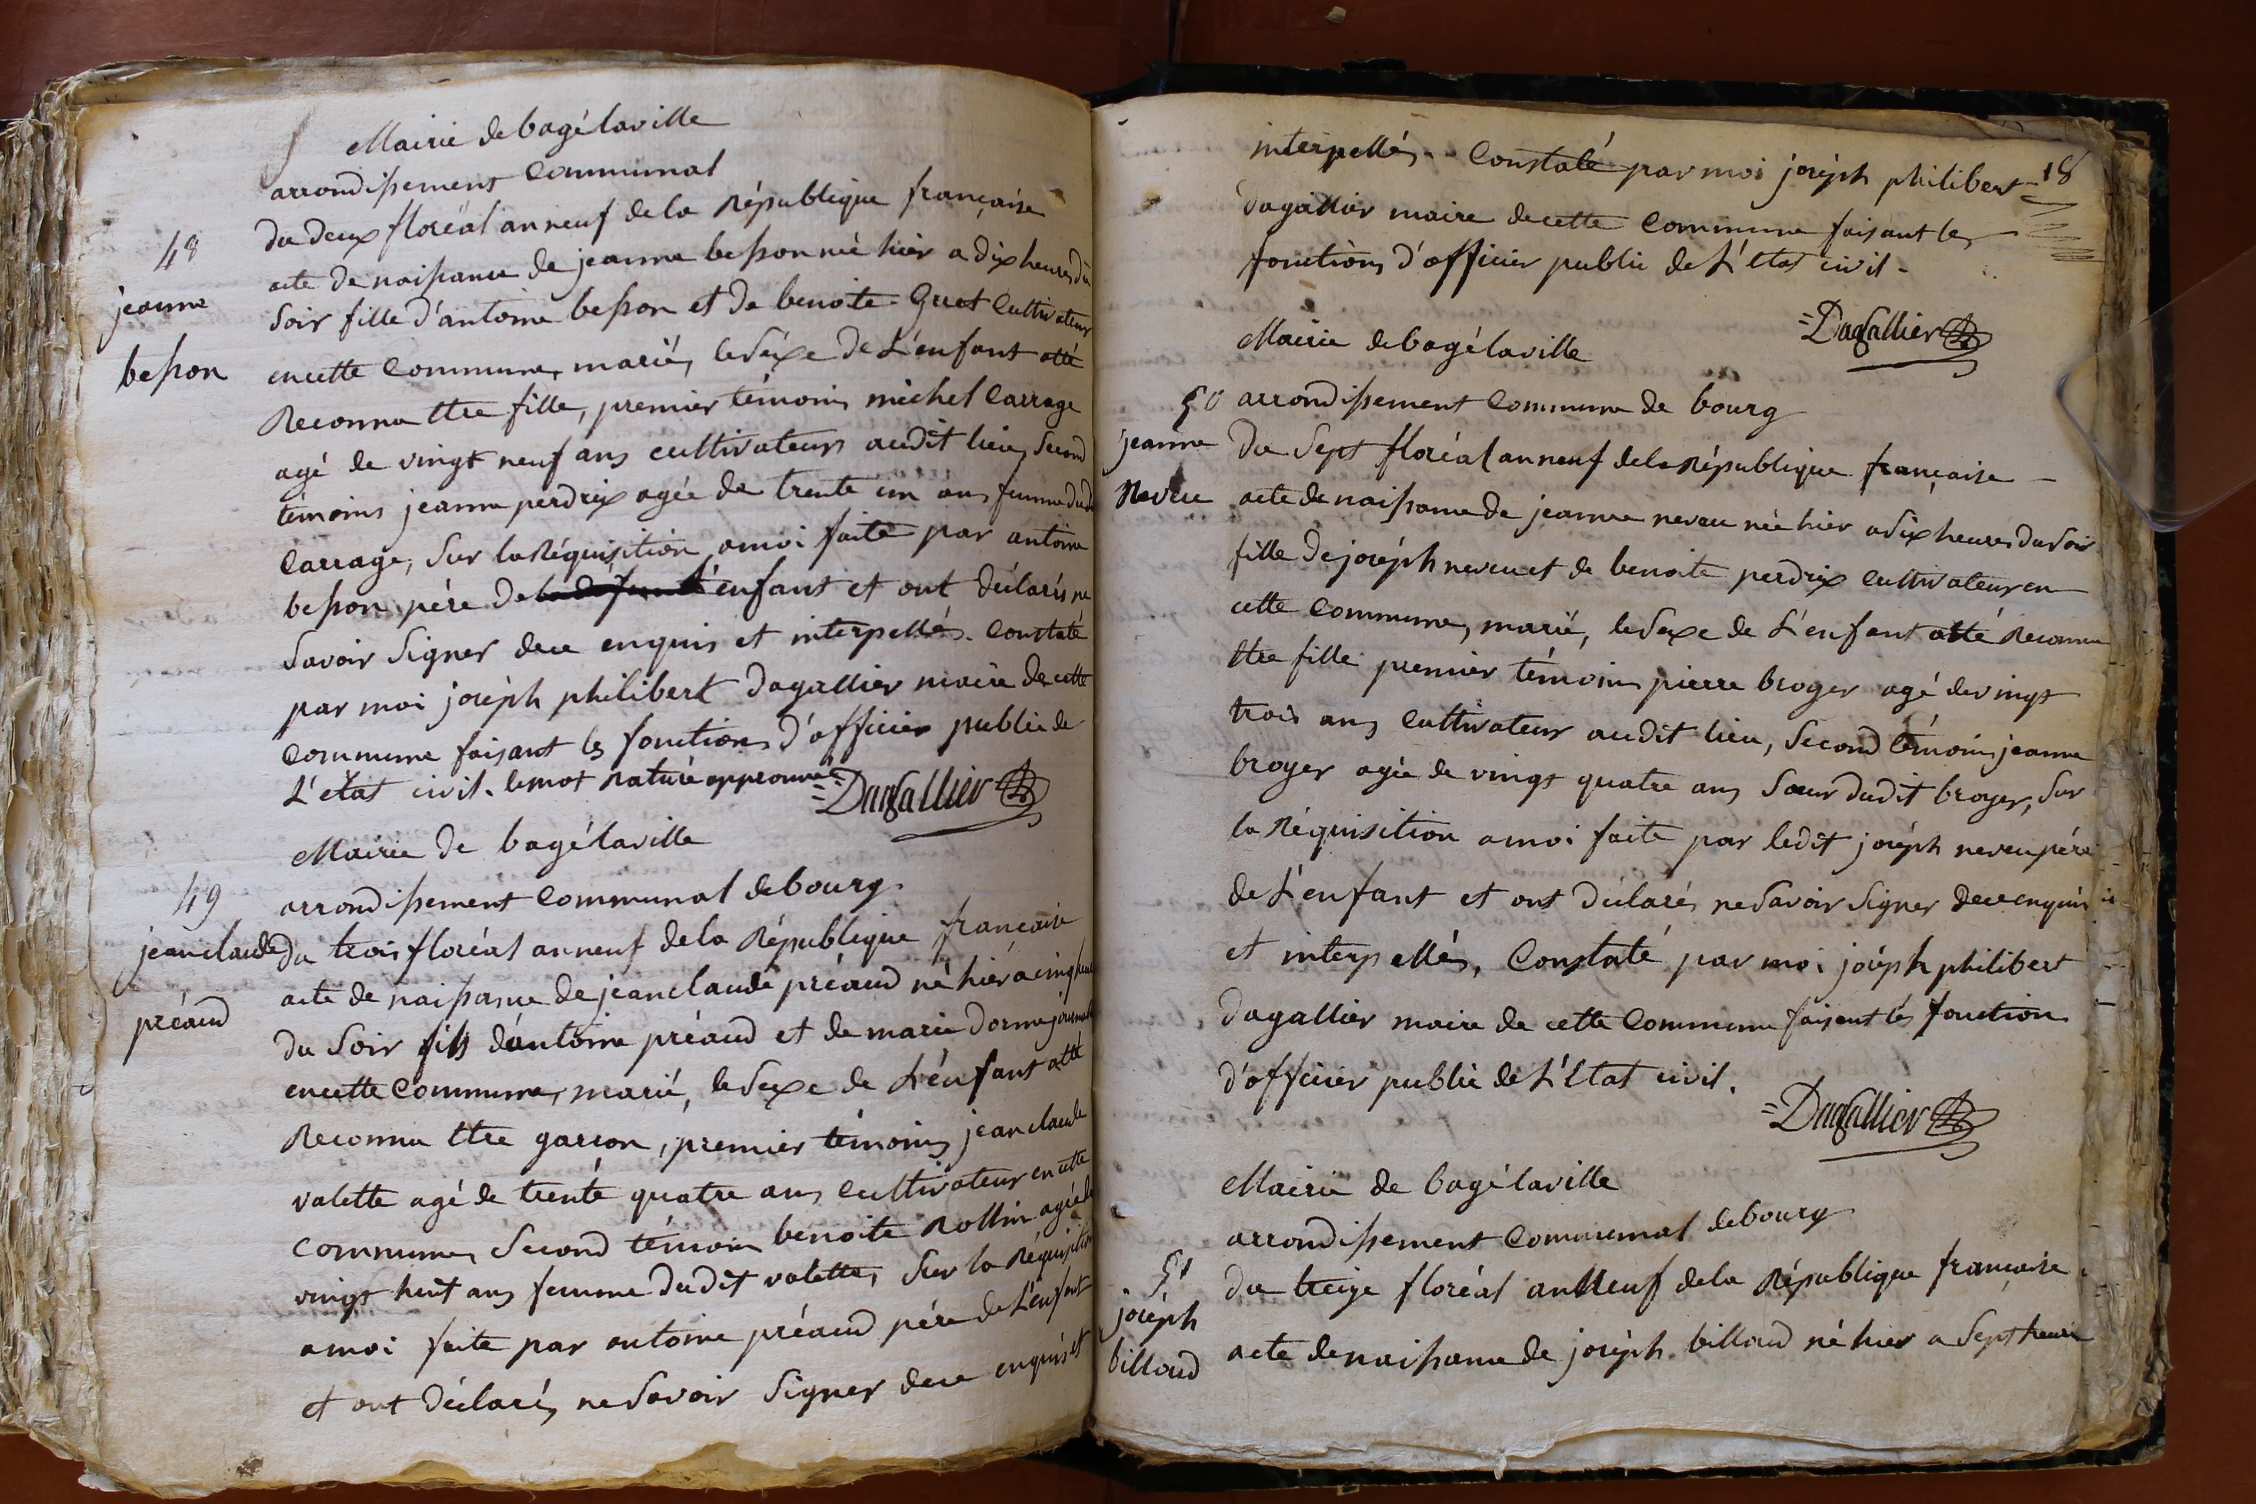 Mairie de bagélaville
arrondissement Communal
du deux floréal an neuf de la République française
48
acte de naissance de jeanne besson née hier a dix heures du
jeanne
soir fille d'antoine besson et de benoite Guot Cultivateur
besson
en cette Commune, marié, le sexe de L'enfant atté
Reconnu ttre fille, premier témoins michel Carrage
agé de vingt neuf ans cultivateurs audit lieu, second
témoins jeanne perdrix agée de trente un ans femme dudit
Carrage, sur la Réquisition a moi faite par antoine
besson pére de L'enfant et ont déclarés ne
savoir signer de ce enquis et interpellés. Constaté
par moi joséph philibert dagallier maire de cette
Commune faisant les fonctions d'officier public de
L'état civil. le mot Raturé approuvé
=Dagallier
Mairie de bagélaville
49
arrondissement Communal de bourg.
jean claude
du trois floréal an neuf de la République française
préaud
acte de naissance de jean claude préaud né hier a cinq heures
du soir fils d'antoine préaud et de marie dorme journalier
en cette Commune, marié, le sexe de L'énfant atté
Reconnu ttre garcon, premier témoins jean claude
valette agé de trente quatre ans cultivateur en cette
commune, second témoin benoite Rollin agée de
vingt huit ans femme dudit valette, sur la Réquisition
a moi faite par antoine préaud pére de L'enfant
et ont déclarés ne savoir signer de ce enquis et
18
interpellés. Constaté par moi joséph philibert
dagallier maire de cette Commune faisant les
fonctions d'officier public de L'état civil -
=Dagallier
Mairie de bagélaville
50
arrondissement Commune de bourg
jeanne
du sept floréal an neuf de la République française -
Neveu
acte de naissance de jeanne neveu née hier a six heures du soir
fille de joséph neveu et de benoite perdrix cultivateur en
cette Commune, marié, le sexe de L'enfant atté Reconnu
ttre fille premier témoins pierre broyer agé de vingt
trois ans cultivateur audit lieu, second témoins jeanne
broyer agée de vingt quatre ans sœur dudit broyer, sur
la Réquisition a moi faite par ledit joséph neveu pére
de L'enfant et ont déclarés ne savoir signer de ce enquis
et interpellés, Constaté par moi joséph philibert
dagallier maire de cette Commune faisant les fonction
d'officier public de L'état civil.
=Dagallier
Mairie de bagélaville
arrondissement Communal de bourg
51
du treize floréal an Neuf de la République française.
joséph
billoud
acte de naissance de joséph billoud né hier a sept heures